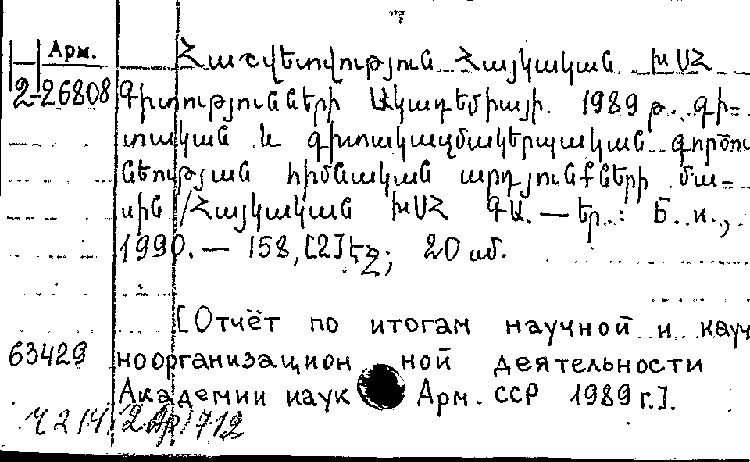 Арм.
Հաշվետվություն Հայկական ԽՍՀ
2-26808 Գիտությունների Ակադեմիայի 1989 թ. գի-
տական և գիտակազմակերպական գործու
նեության հիմնական արդյունքների մա-
սին /Հայկական ԽՍՀ ԳԱ. — եր.: Б. и.,
1990. — 158, [2] էջ; 20 սմ.
[Отчёт по итогам научной и науч
63429 ноорганизацион ной деятельности
Академии наук Арм. ССР 1989 г.].